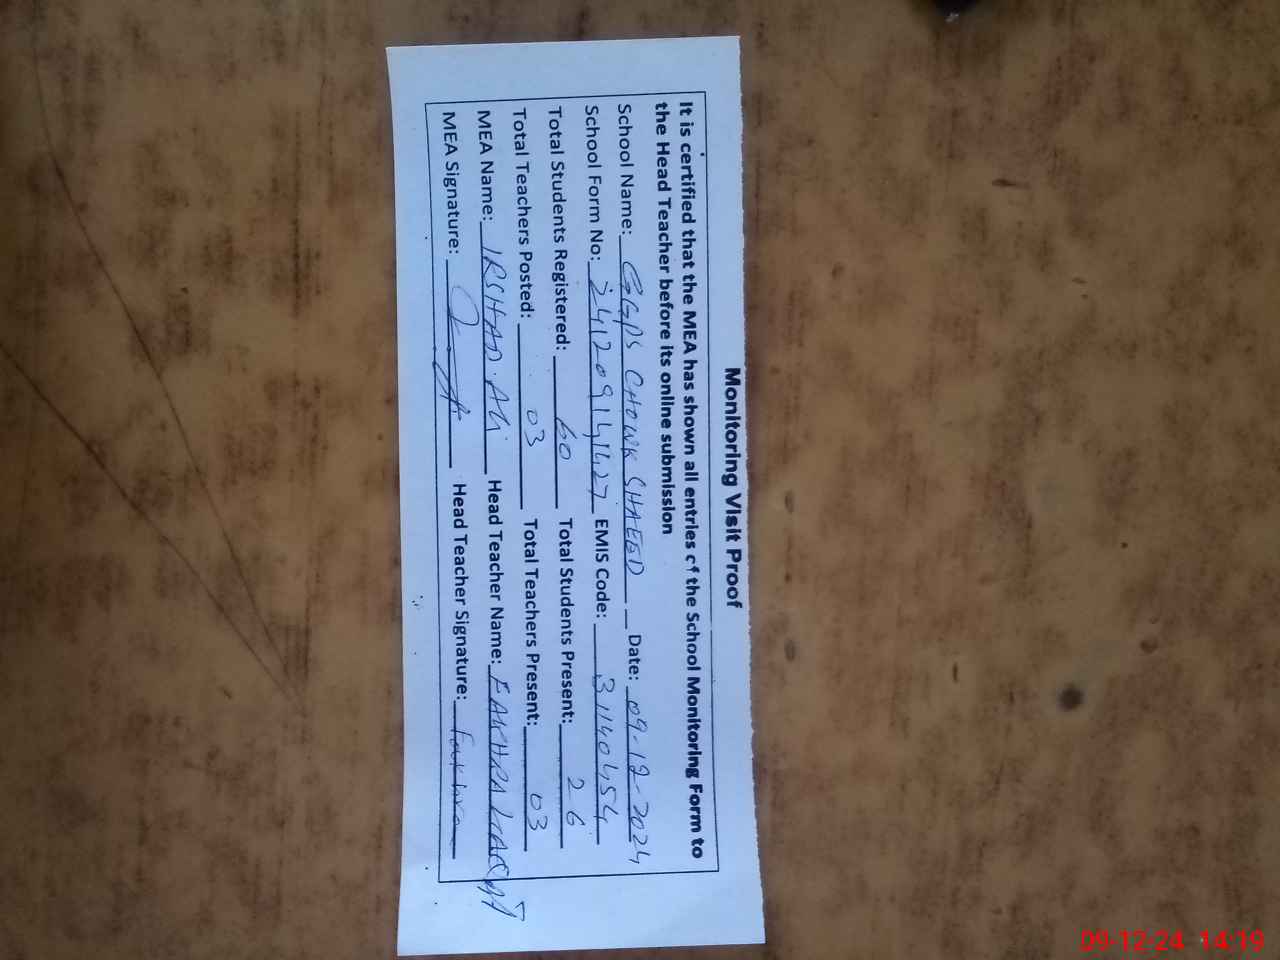 Monitoring Visit Proof
It is certified that the MEA has shown all entries of the School Monitoring Form to
the Head Teacher before its online submission
School Name: GGPS CHOWK SHAEED Date: 09-12-2024
School Form No: EMIS Code: 31140454
Total Students Registered: 60 Total Students Present: 26
Total Teachers Posted: 03 Total Teachers Present: 03
MEA Name: IRSHAD ALI Head Teacher Name: FAKHRA
MEA Signature: Head Teacher Signature: Fakhra
09-12-24 14:19